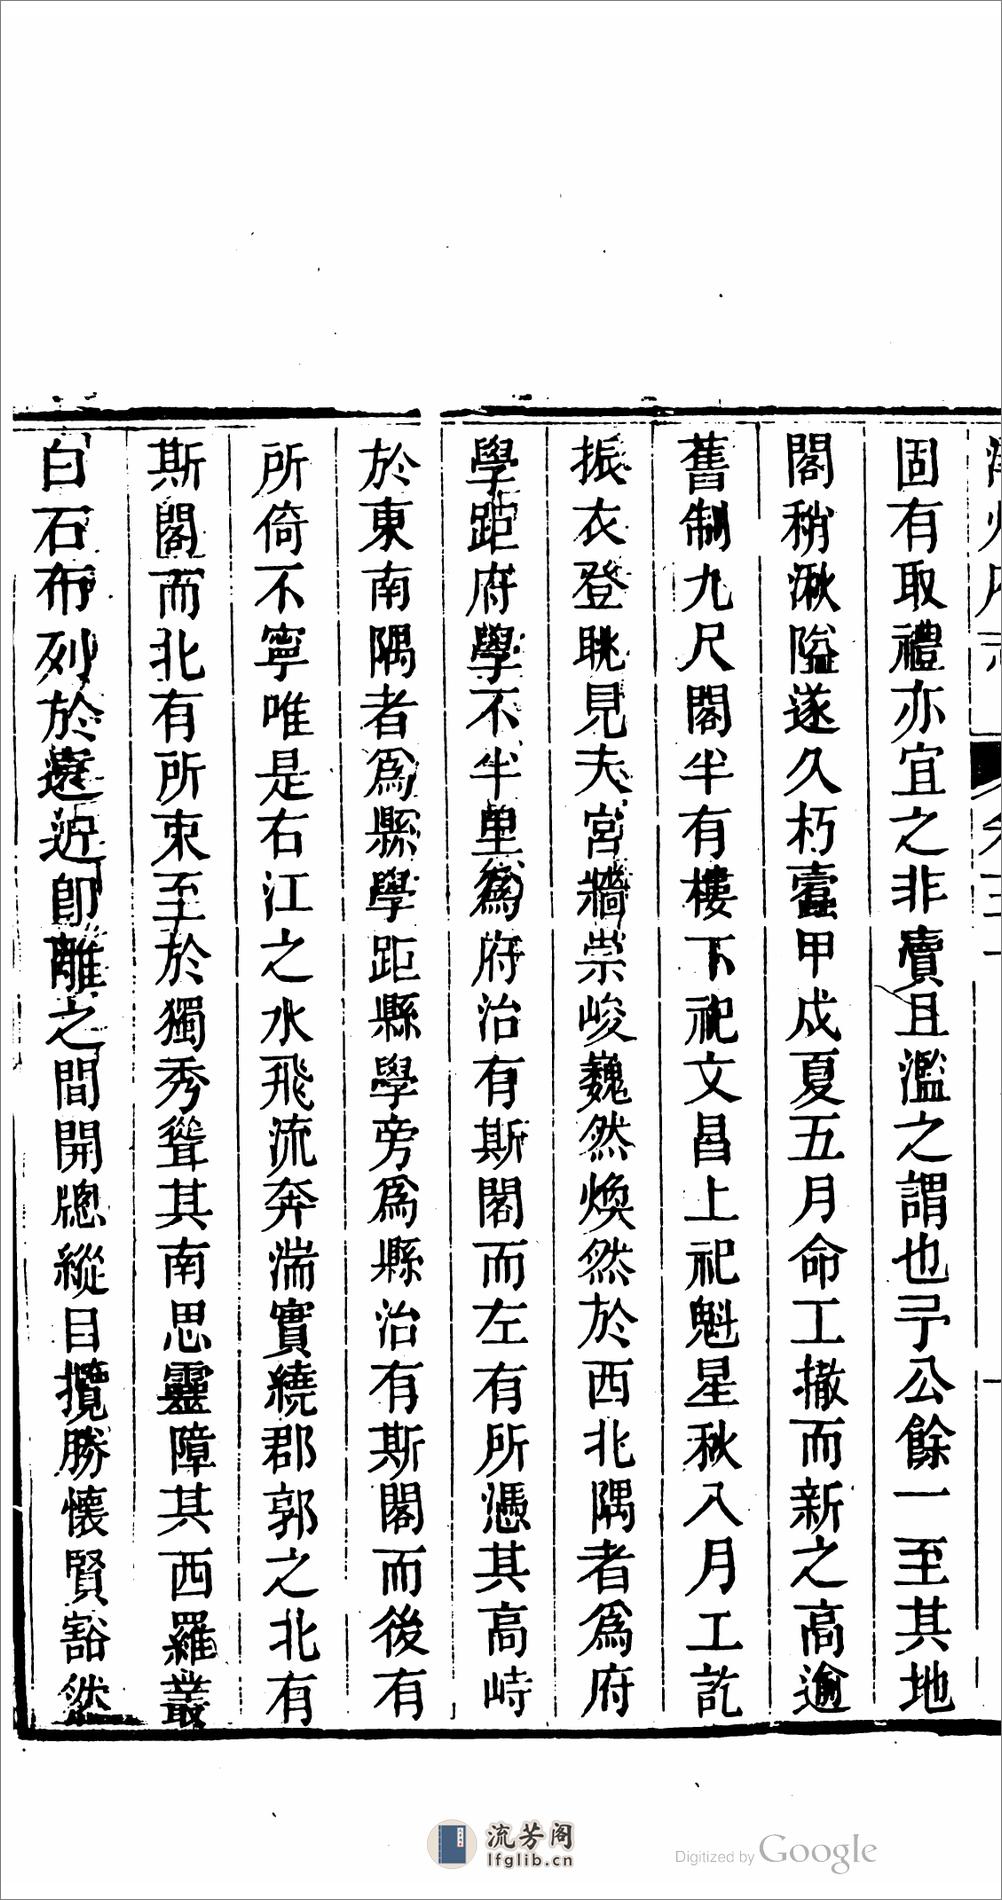 固有取禮亦宜之非賣且濫之謂也予公餘一至其地
閣稍湫隘遂久朽蠹甲戍夏五月命工撤而新之高逾
舊制九尺閣半有樓下祀文昌上祀魁星秋八月工訖
振衣登眺見夫宮牆崇峻巍然煥然於西北隅者為府
學距府學不半里為府治有斯閣而左有所憑其高峙
於東南隅者為縣學距縣學旁為縣治有斯閣而後有
所倚不寧唯是右江之水飛流奔湍實繞郡郭之北有
斯閣而北有所束至於獨秀聳其南思靈障其西羅叢
白石布列於遠近卽離之間開牕縱目攬勝懷賢豁然
流芳阁
lfglib.cn
Digitized by Google